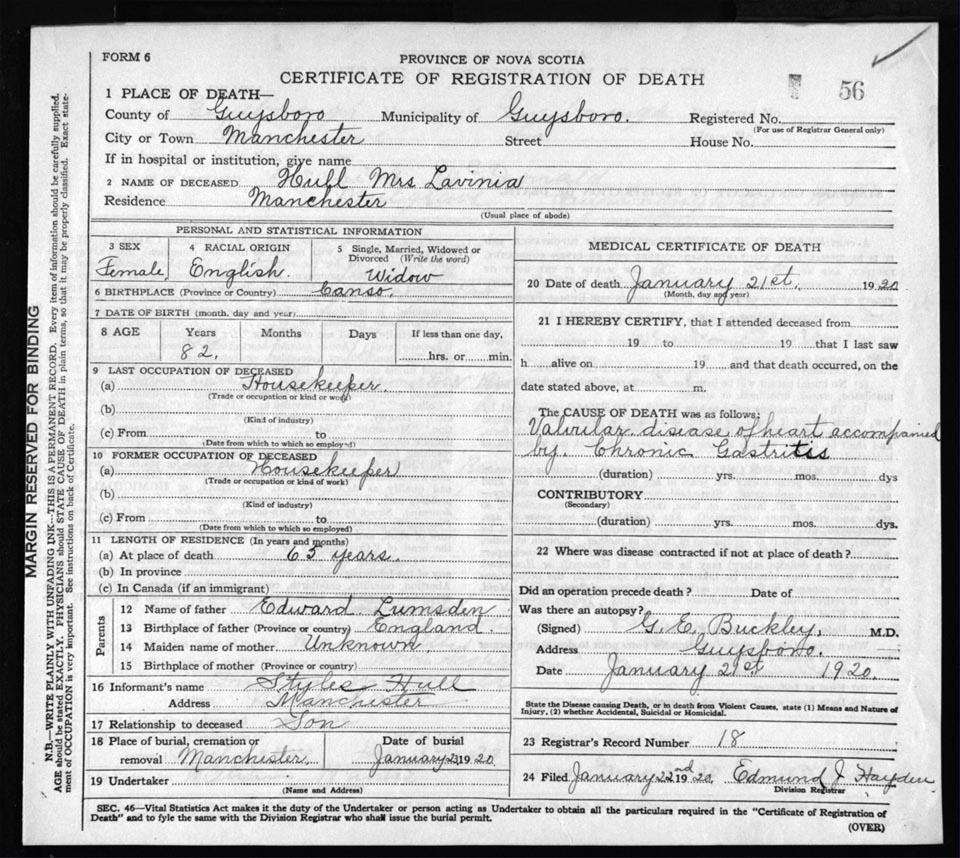 FORM 6
PROVINCE OF NOVA SCOTIA
CERTIFICATE OF REGISTRATION OF DEATH
56
1 PLACE OF DEATH—
County of Guysboro Municipality of Guysboro. Registered No.
(For use of Registrar General only)
City or Town Manchester Street House No.
If in hospital or institution, give name
2 NAME OF DECEASED Hull Mrs Lavinia
Residence Manchester
(Usual place of abode)
PERSONAL AND STATISTICAL INFORMATION
3 SEX
Female
4 RACIAL ORIGIN
English.
5 Single, Married, Widowed or
Divorced (Write the word)
Widow
6 BIRTHPLACE (Province or Country) Canso.
7 DATE OF BIRTH (month, day and year)
8 AGE Years Months Days If less than one day,
82. hrs. or min.
9 LAST OCCUPATION OF DECEASED
(a) Housekeeper
(Trade or occupation or kind or work)
(b)
(Kind of industry)
(c) From to
(Date from which to which so employed)
10 FORMER OCCUPATION OF DECEASED
(a) Housekeeper
(Trade or occupation or kind of work)
(b)
(Kind of industry)
(c) From to
(Date from which to which so employed)
11 LENGTH OF RESIDENCE (In years and months)
(a) At place of death 65 years.
(b) In province
(c) In Canada (if an immigrant)
Parents
12 Name of father Edward Lumsden
13 Birthplace of father (Province or country) England
14 Maiden name of mother Unknown.
15 Birthplace of mother (Province or country)
16 Informant's name Styles Hull
Address Manchester
17 Relationship to deceased Son
18 Place of burial, cremation or
removal Manchester
Date of burial
January 1920
19 Undertaker
(Name and Address)
MEDICAL CERTIFICATE OF DEATH
20 Date of death January 21st. 1920
(Month, day and year)
21 I HEREBY CERTIFY, that I attended deceased from
19 to 19 that I last saw
h alive on 19 and that death occurred, on the
date stated above, at m.
The CAUSE OF DEATH was as follows:
Valvular disease of heart accompanied
by. Chronic Gastritis
(duration) yrs. mos. dys
CONTRIBUTORY
(Secondary)
(duration) yrs. mos. dys.
22 Where was disease contracted if not at place of death?
Did an operation precede death? Date of
Was there an autopsy?
(Signed) G. E. Buckley, M.D.
Address Guysboro.
Date January 21st 1920.
State the Disease causing Death, or in death from Violent Causes, state (1) Means and Nature of
Injury, (2) whether Accidental, Suicidal or Homicidal.
23 Registrar's Record Number 18
24 Filed January 22nd 1920 Edmund J Hayden
Division Registrar
SEC. 46—Vital Statistics Act makes it the duty of the Undertaker or person acting as Undertaker to obtain all the particulars required in the "Certificate of Registration of
Death" and to fyle the same with the Division Registrar who shall issue the burial permit.
(OVER)
MARGIN RESERVED FOR BINDING
N.B.—WRITE PLAINLY WITH UNFADING INK—THIS IS A PERMANENT RECORD. Every item of information should be carefully supplied.
AGE should be stated EXACTLY. PHYSICIANS should STATE CAUSE OF DEATH in plain terms, so that it may be properly classified. Exact state-
ment of OCCUPATION is very important. See instructions on back of Certificate.